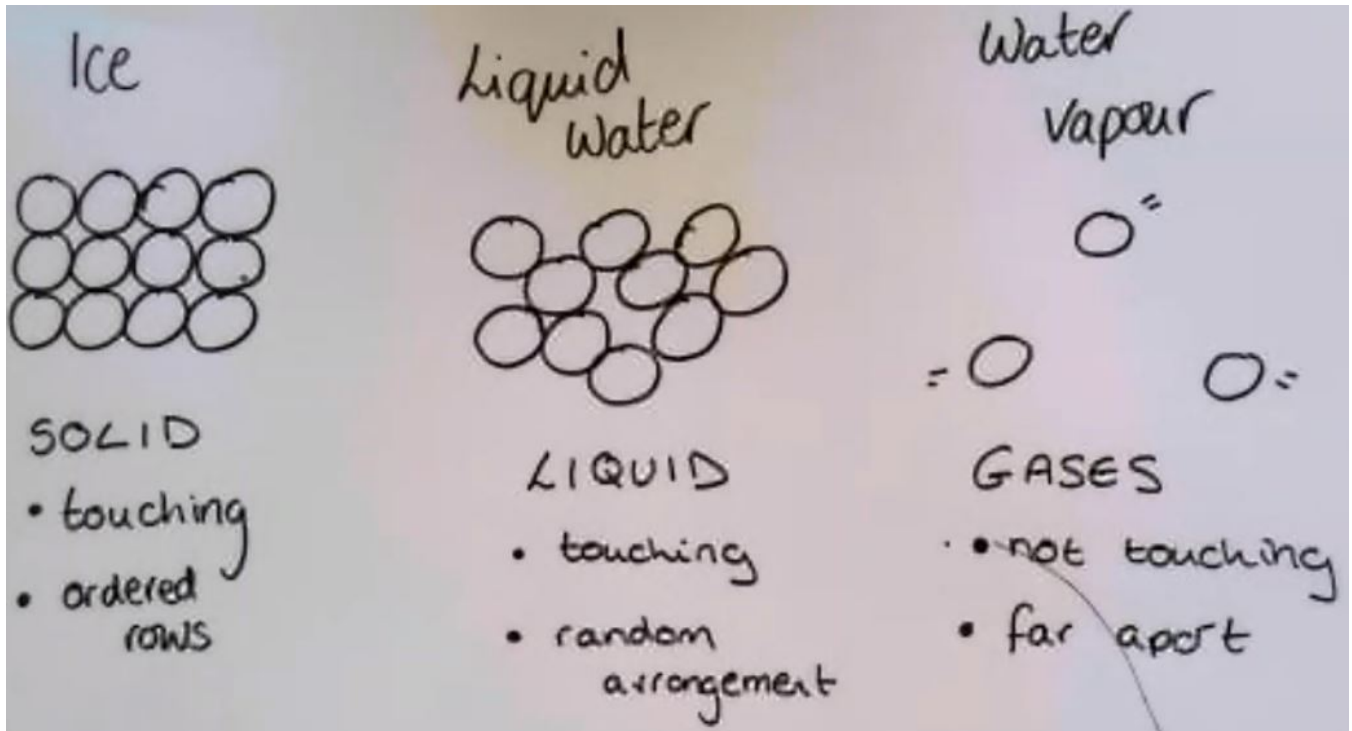 Ice
SOLID
• touching
• ordered
rows
Liquid
Water
LIQUID
• touching
• random
arrangement
Water
vapour
GASES
• not touching
• far apart